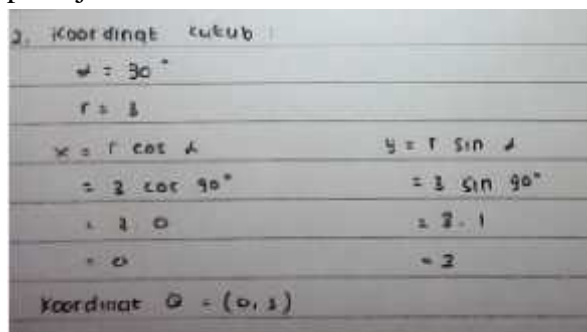 2. Koordinat kutub :
α = 90°
r = 3
x = r cos α
= 3 cos 90°
= 3 . 0
= 0
y = r sin α
= 3 sin 90°
= 3 . 1
= 3
Koordinat Q = (0, 3)